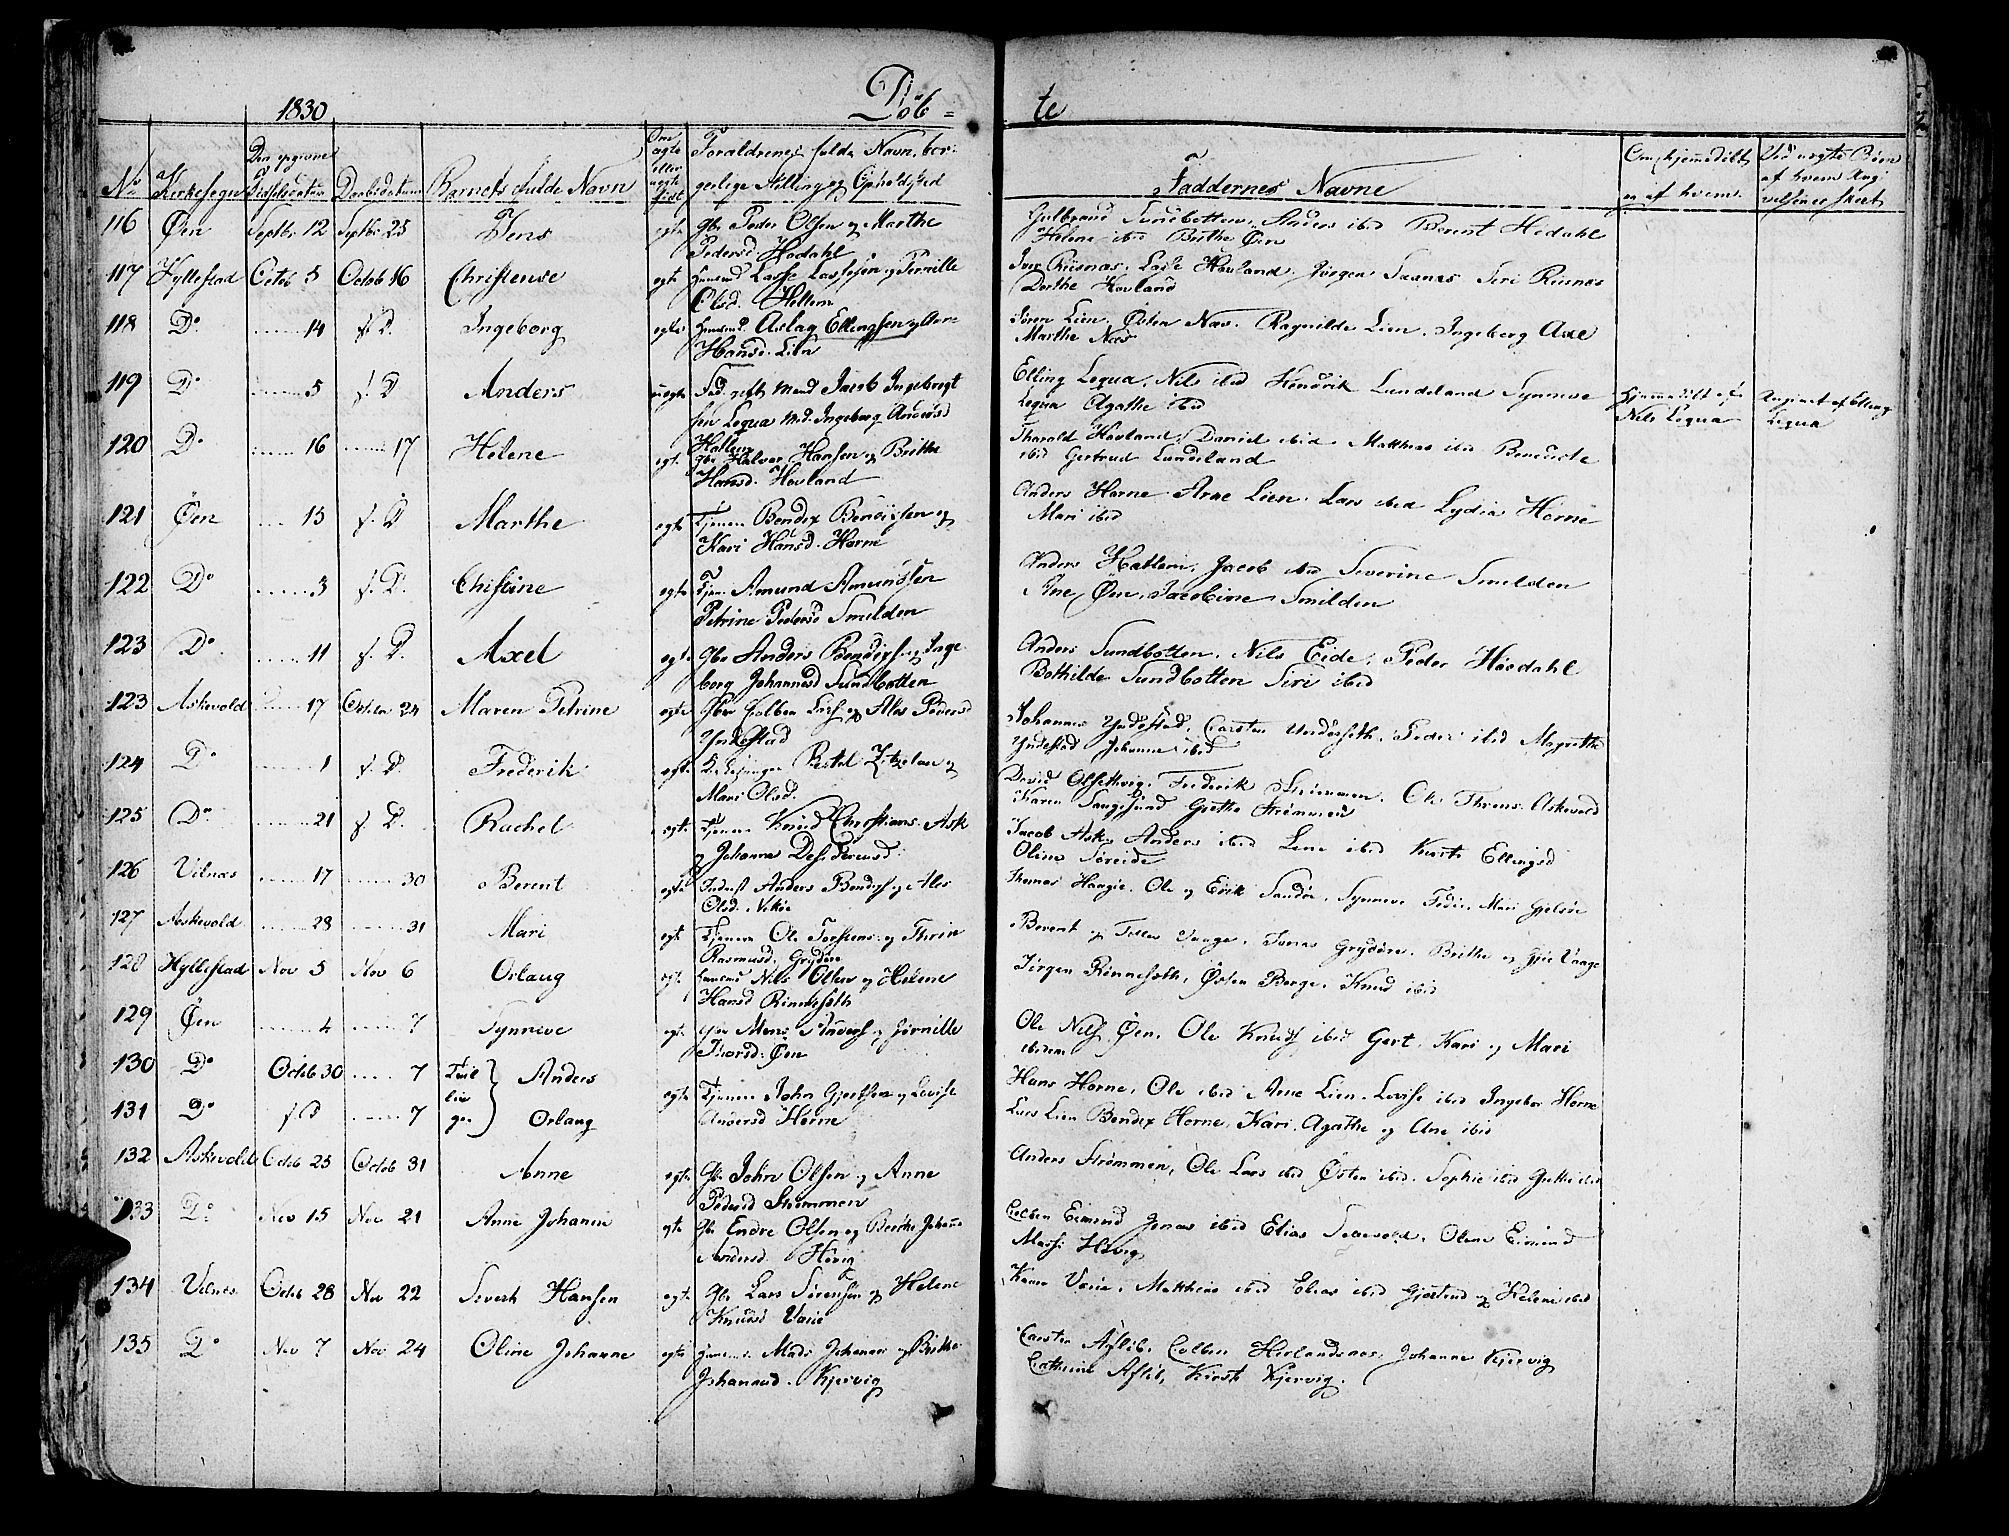 1830 Döb = te
No Kirkesogn Den opgivne Fødselsdatum Daabsdatum Barnets fulde Navn Om ægte eller uægte født Forældrenes fulde Navn, borgerlige Stilling og Opholdsted Faddernes Navne Om hjemmedöbt og af hvem. Ved uægte Børn af hvem Angivelsen er skeet
116 Øen Septbr 12 Septbr 25 Jens egte Gbr Peder Olsen og Marthe
Pedersd Hodahl
Gulbrand Sundbotten, Anders ibid Berent Hodahl
Helene ibid Brithe Øen
117 Hyllestad Octob 5 Octob 16 Christense egte Huusmd Lasse Lassesen og Pernille
Olsd. Hellem
Iver Risnæs. Lasse Hovland, Jörgen Saanæs Siri Risnæs
Dorthe Hovland
118 Do ...... 14 f. D. Ingeborg egte Huusmd. Aslag Ellingsen og
Hansd. Lien
Sören Lien. Østen Næs. Ragnilde Lien. Ingeborg Axe
Marthe Næs
119 Do ...... 5 f. D Anders uegte Fad. gift Mand Jacob Ingebrigt
sen Leqva Md. Ingeborg Andersd
Hatlem
Elling Leqva, Nils ibid Hendrik Lundeland Synneve
Leqva Agathe ibid
Hjemmedöbt af
Nils Leqva
Angivet af Elling
Leqva
120 Do ...... 16 ...... 17 Helene egt. Gbr Halvor Hansen og Brithe
Hansd. Hovland
Tharald Hovland, Daniel ibid Matthias ibid Benedicte
ibid Gertrud Lundeland
121 Øen .... 15 f. D Marthe egte Tjenen Bendix Bendixsen og
Kari Hansd. Horne
Anders Horne Arne Lien. Lars ibid Lydia Horne
Mari ibid
122 Do ...... 3 f. D. Chistine egte Tjen. Amund Amundsen
Petrine Pedersd Smilden
Anders Hatlem, Jacob ibid Severine Smilden
Ane Øen, Jacobine Smilden
123 Do. ...... 11 f. D. Axel egte Gbr Anders Bendixs. og Inge
borg Johannesd Sundbotten
Anders Sundbotten, Nils Eide, Peder Hoedahl
Bothilde Sundbotten Siri ibid
123 Askevold ...... 17 Octobr 24 Maren Petrine egte Gbr Colben Lars og Ales Pedersd
Yndestad
Johannes Yndestad, Carsten Underseth, Peder ibid Magrethe
Yndestad Johanne ibid
124 Do ...... 1 f. D. Frederik egte Bertel
Mari Olsd.
David Olsethvig, Frederik Strömmen. Ole Askevold
Karen Grethe Strömmen
125 Do ...... 21 f. D. Rachel egte Tjenen Knud Christians. Ask
og Johanna Desiderensd.
Jacob Ask Anders ibid Lene ibid Kirsti Ellingsd
Oline Søreide
126 Vilnæs ...... 17 ...... 30 Berent egte Anders Bendixs og Ales
Olsd.
Thomas Haagöe. Ole og Erik Sandöe. Synneve Mari Gjelsöe
127 Askevold ...... 28 ...... 31 Mari egt Tjenen Ole Torstens: og Thrin
Rasmusd, Grydöen
Berent og Tollev Vaage, Jonas Grydöen, Brithe og Vaage
128 Hyllestad Nov 5 Nov 6 Oslaug egt. Huusmd Nils Olsen og Helene
Hansd Rinneseth
Jörgen Rinneseth, Østen Berge. Knud ibid
129 Øen .... 4 ...... 7 Synneve egt. Gbr Mons Anders. og Jörnille
Iversd. Øen
Ole Nils. Øen. Ole Knuds ibid Gert, Kari og Mari
ibidem
130 Do Octob 30 ..... 7 Tvil Anders egte Tjenen John Gjertsen og Lovise
Andersd Horne
Hans Horne, Ole ibid Anne Lien. Lovise ibid Ingebor Horne
131 Do f D ...... 7 lin ger Oslaug
Lars Lien Bendix Horne, Kari. Agathe og Ane ibid
132 Askevold Octob 25 Octob 31 Anne egte Gb. John Olsen og Anne
Pedersd Strömmen
Anders Strömmen, Ole Lars ibid Østen ibid. Sophie ibid Grethe ibid
133 Do Nov 15 Nov 21 Anne Johanne egte Gb. Endre Olsen og Berthe Johanne
Andersd. Hövig
Colben Eimind Jonas ibid Elias Oline Eimind
Massi Hövig
134 Vilnes Octob 28 Nov 22 Sivert Hansen egte Gbr Lars Sörensen og Helene
Knudsd Varöe
Karen Varöe, Matthias ibid Elias ibid og Helene ibid
135 Do Nov 7 Nov 24 Oline Johanne egte Huusmd. Mads Johanns og Brithe
Johannsd. Kjervig
Carsten Afléb, Colben Herlandsnæs. Johanne Kjervig
Cathrine Afléb, Kirsti Kjervig.